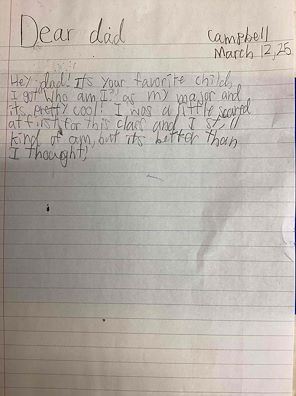 Dear dad
Campbell
March 12, 25
Hey dad! Its your favorite child,
I got "Who am I?" as my major and
its pretty cool! I was a little scared
at first for this class and I still
kind of am, but its better than
I thought!